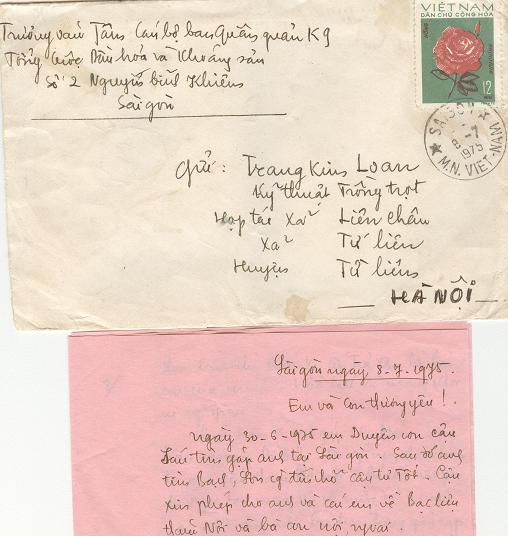 Trương văn Tâm Cán bộ ban Quân quản K9
Tổng cục Dầu hóa và Khoáng sản
Số 2 Nguyễn bỉnh Khiêm
Sài gòn
VIỆT NAM
DÂN CHỦ CỘNG HÒA
12
SAIGON
8-7
1975
M.N. VIET-NAM
Gửi: Trang Kim Loan
Kỹ thuật Trồng trọt
Hợp tác Xã Liên châu
Xã Tứ liên
Huyện Từ liêm
HÀ NỘI
Sài gòn ngày 8-7-1975.
Em và Con thương yêu!
Ngày 30-6-1975 em Duyên con cậu
Sáu tìm gặp anh tại Sài gòn. Sau đó anh
tìm Bạch, cậu Tư Tốt. Cậu
xin phép cho anh và các em về Bạc liêu
thăm Nội và bà con nội, ngoại.